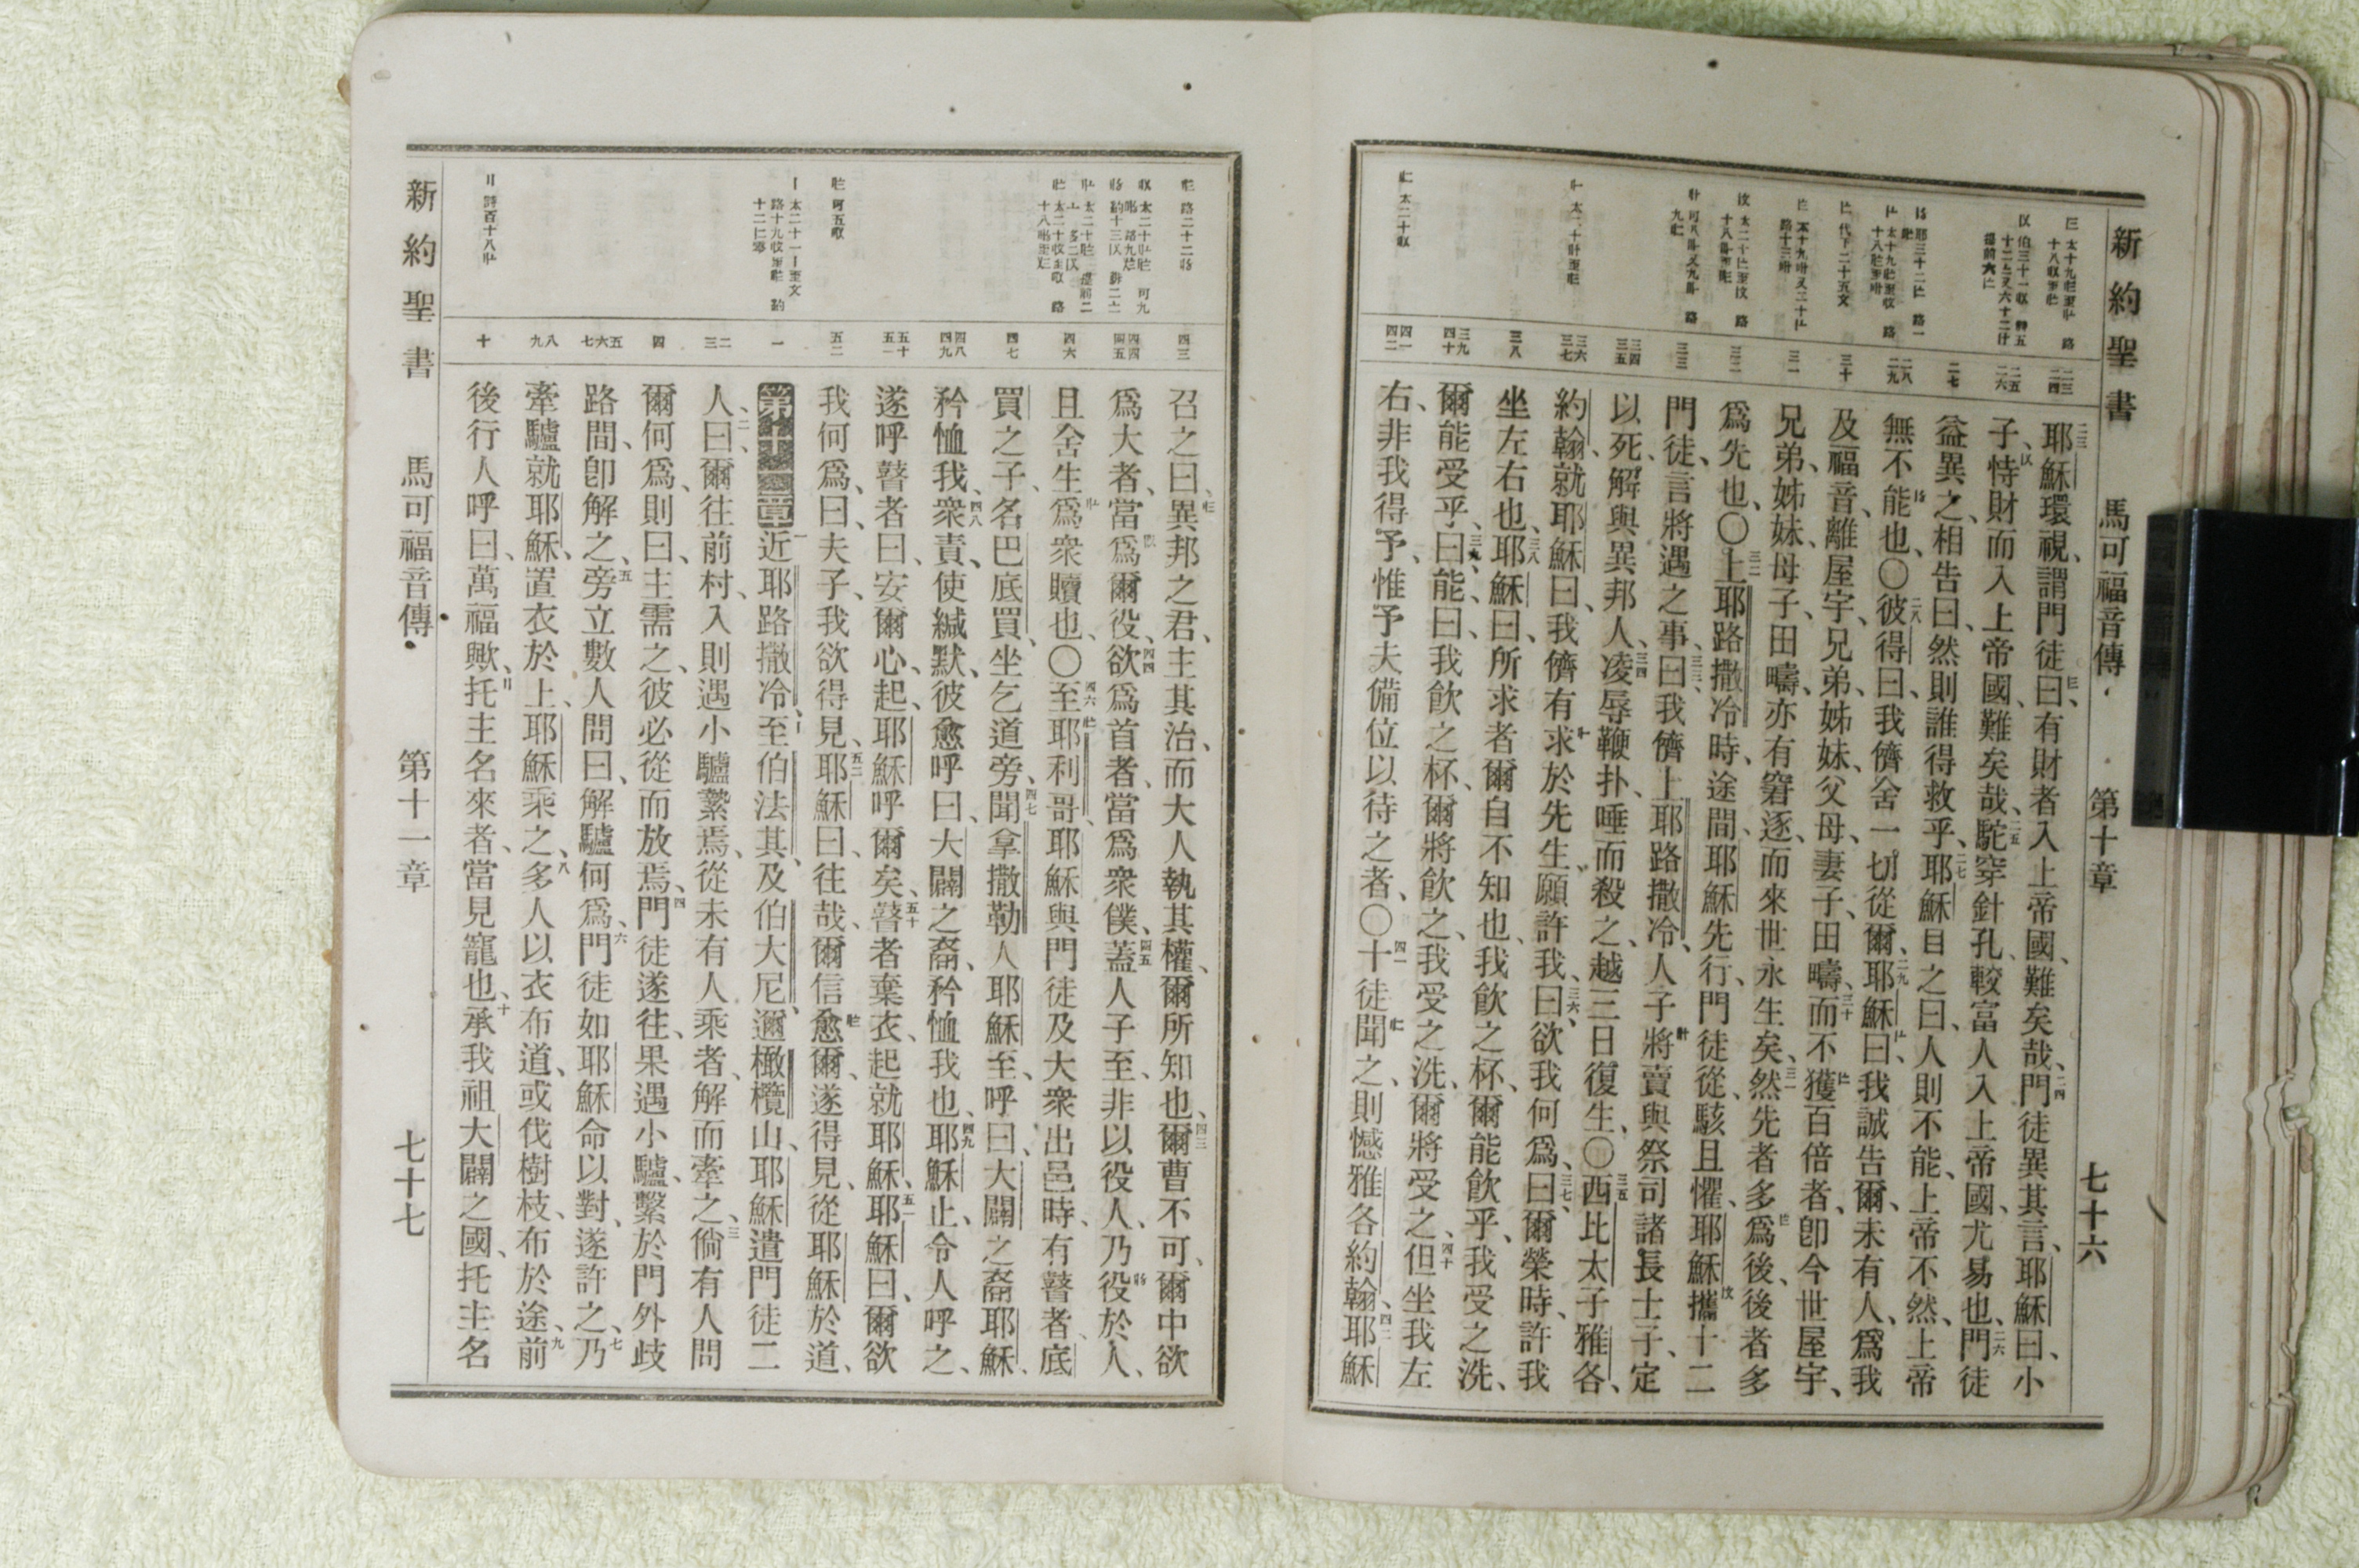 新約聖書 馬可福音傳 第十章 七十六
耶穌環視、謂門徒曰、有財者入上帝國、難矣哉、門徒異其言、耶穌曰、小
子、恃財而入上帝國、難矣哉、駝穿針孔、較富人入上帝國、尤易也、門徒
益異之、相告曰、然則誰得救乎、耶穌目之曰、人則不能、上帝不然、上帝
無不能也、〇彼得曰、我儕舍一切從爾、耶穌曰、我誠告爾、未有人、爲我
及福音、離屋宇、兄弟、姊妹、父母、妻子、田疇、而不獲百倍者、卽今世屋宇、
兄弟、姊妹、母子、田疇、亦有窘逐、而來世永生矣、然先者多爲後、後者多
爲先也、〇上耶路撒冷時、途間、耶穌先行、門徒從、駭且懼、耶穌攜十二
門徒、言將遇之事、曰、我儕上耶路撒冷、人子將賣與祭司諸長士子、定
以死、解與異邦人、凌辱鞭扑、唾而殺之、越三日復生、〇西比太子雅各、
約翰、就耶穌曰、我儕有求於先生、願許我、曰、欲我何爲、曰、爾榮時、許我
坐左右也、耶穌曰、所求者爾自不知也、我飲之杯、爾能飲乎、我受之洗、
爾能受乎、曰、能、曰、我飲之杯、爾將飲之、我受之洗、爾將受之、但坐我左
右、非我得予、惟予夫備位以待之者、〇十徒聞之、則憾雅各約翰、耶穌
新約聖書 馬可福音傳 第十一章 七十七
召之曰、異邦之君、主其治、而大人執其權、爾所知也、爾曹不可、爾中欲
爲大者、當爲爾役、欲爲首者、當爲衆僕、蓋人子至、非以役人、乃役於人、
且舍生爲衆贖也、〇至耶利哥、耶穌與門徒及大衆出邑時、有瞽者、底
買之子、名巴底買、坐乞道旁、聞拿撒勒人耶穌至、呼曰、大闢之裔耶穌、
矜恤我、衆責、使緘默、彼愈呼曰、大闢之裔、矜恤我也、耶穌止、令人呼之、
遂呼瞽者曰、安爾心、起、耶穌呼爾矣、瞽者棄衣、起就耶穌、耶穌曰、爾欲
我何爲、曰、夫子、我欲得見、耶穌曰、往哉、爾信愈爾、遂得見、從耶穌於道、
第十一章近耶路撒冷、至伯法其、及伯大尼、邇橄欖山、耶穌遣門徒二
人、曰、爾往前村、入則遇小驢縶焉、從未有人乘者、解而牽之、倘有人問
爾何爲、則曰、主需之、彼必從而放焉、門徒遂往、果遇小驢、繫於門外歧
路間、卽解之、旁立數人問曰、解驢何爲、門徒如耶穌命以對、遂許之、乃
牽驢就耶穌、置衣於上、耶穌乘之、多人以衣布道、或伐樹枝、布於途、前
後行人呼曰、萬福歟、托主名來者、當見寵也、承我祖大闢之國、托主名